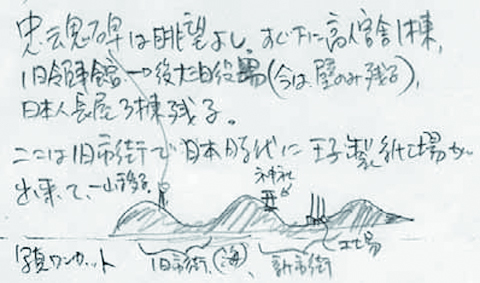 忠魂碑は眺望よし。すぐ下に高官舎1棟、
旧領事館→後大泊役場(今は壁のみ残る)、
日本人長屋3棟残る。
ここは旧市街で日本時代に王子製紙工場が
出来て、一山移る
神社
工場
写真ワンカット
旧市街(海)、新市街